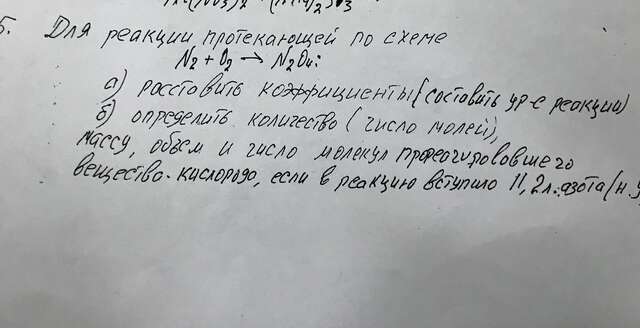 5. Для реакции протекающей по схеме
N₂ + O₂ → N₂O₄:
а) расставить коэффициенты (составить ур-е реакции)
б) определить количество (число молей),
массу, объем и число молекул прореагировавшего
вещества-кислорода, если в реакцию вступило 11,2л. азота (н.у